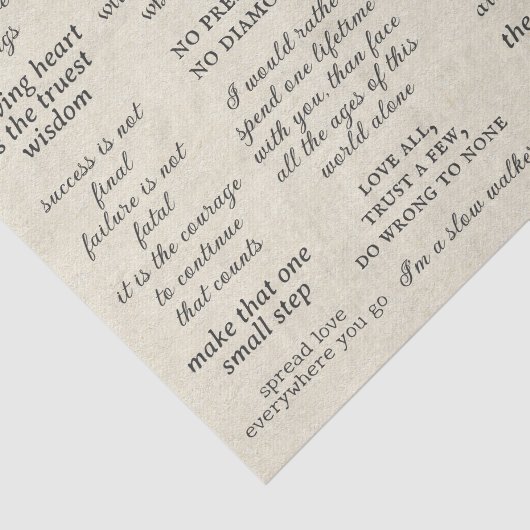 ving heart
s the truest
wisdom
success is not
final
failure is not
fatal
it is the courage
to continue
that counts
make that one
small step
spread love
everywhere you go
NO PRE
NO DIAMO
I would rathe
spend one lifetime
with you, than face
all the ages of this
world alone
LOVE ALL,
TRUST A FEW,
DO WRONG TO NONE
I'm a slow walke
the